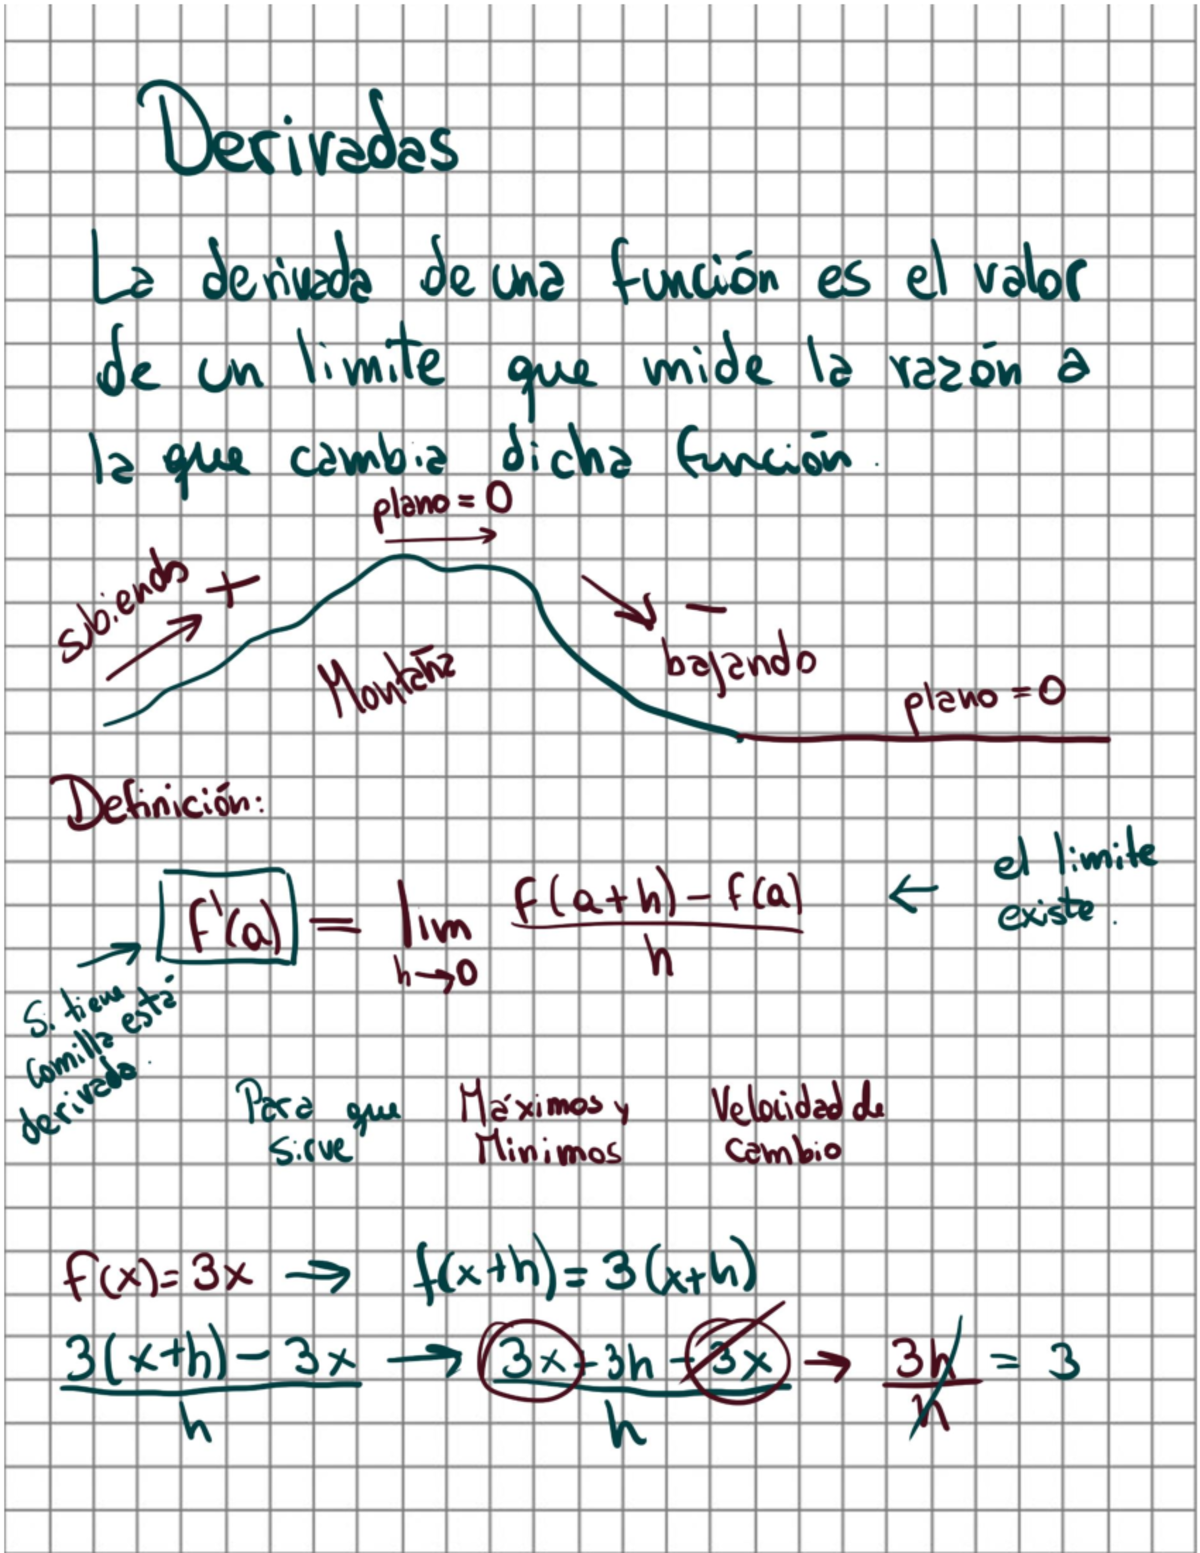 Derivadas
La derivada de una función es el valor
de un limite que mide la razón a
la que cambia dicha función.
plano = 0
subiendo +
-
bajando
Montaña
plano = 0
Definición:
f'(a) = lim f(a+h) - f(a)
h→0 h
← el limite
existe.
Si tiene
comilla está
derivada.
Para que
sirve
Máximos y
Minimos
Velocidad de
cambio
f(x) = 3x → f(x+h) = 3(x+h)
3(x+h) - 3x → 3x + 3h - 3x → 3h = 3
h h h